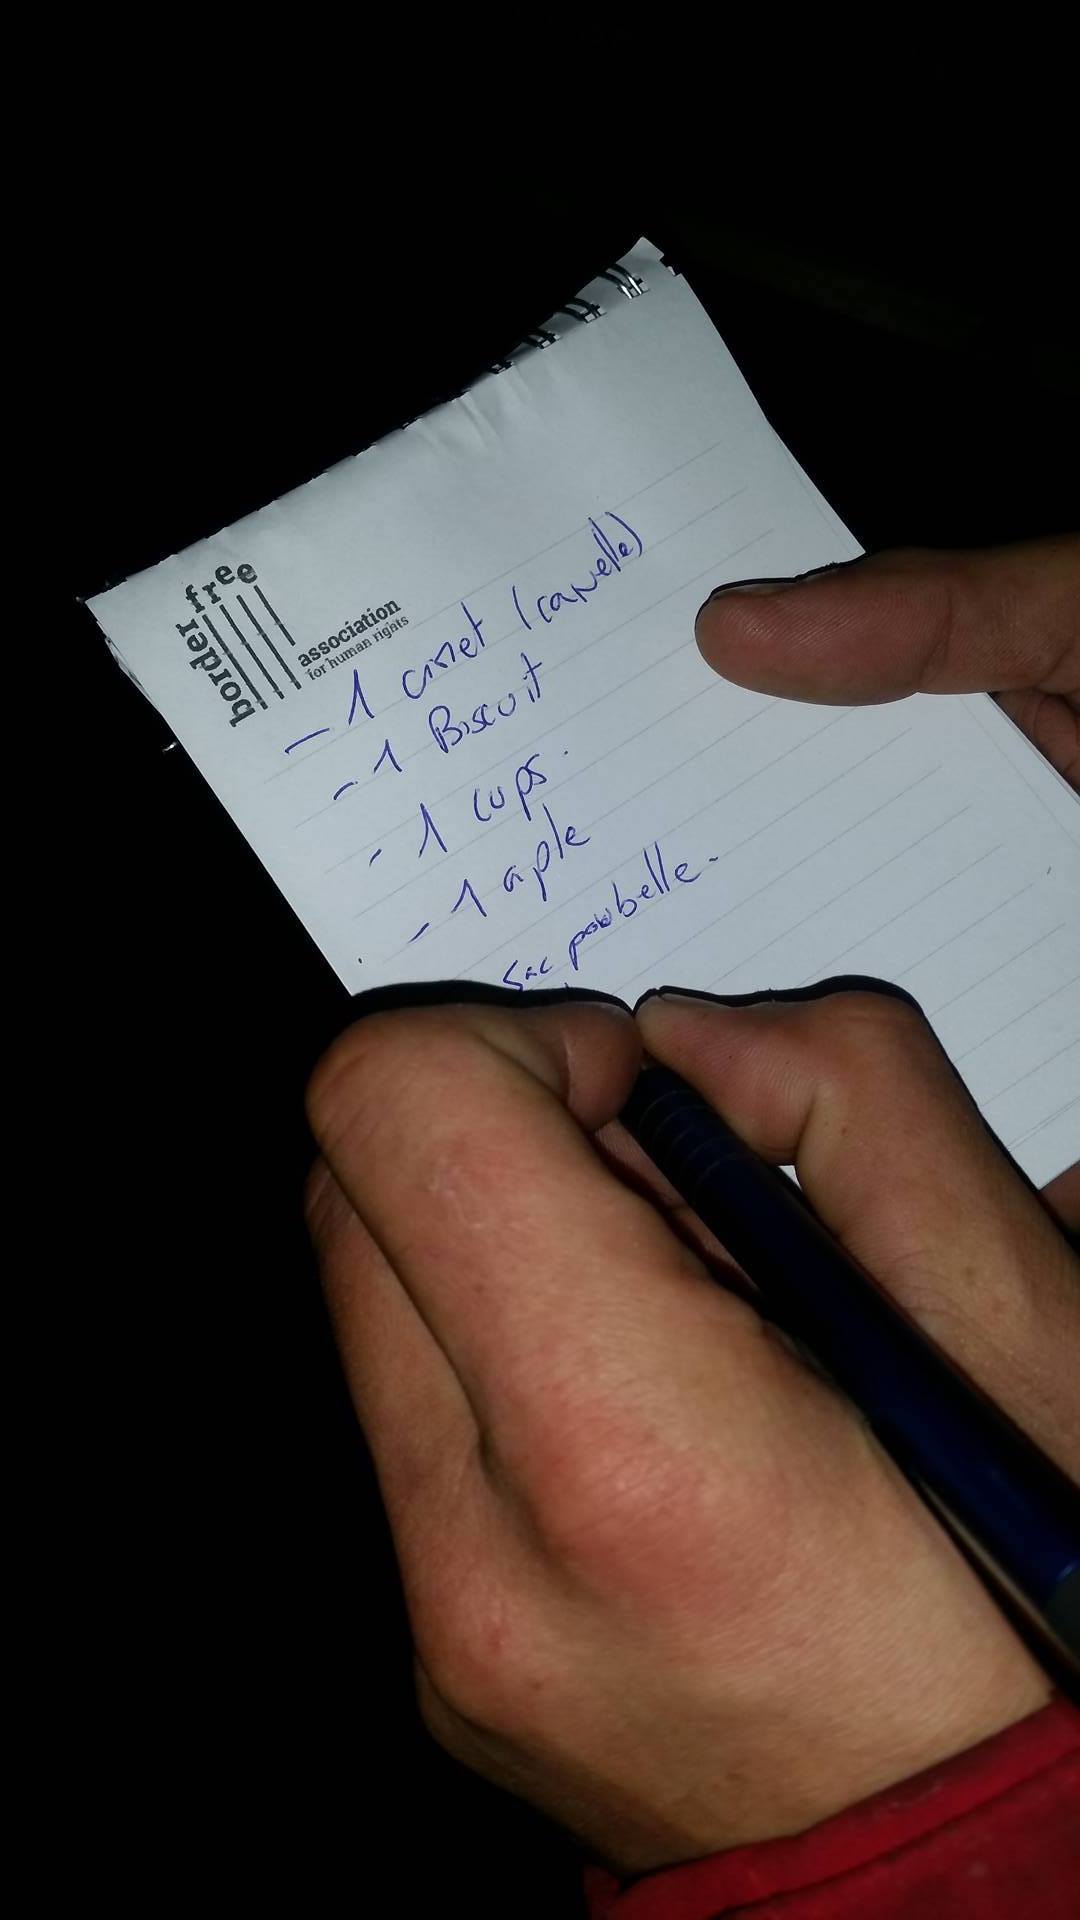 border free
association
for human rights
- 1 (canelle)
- 1 Biscuit
- 1 cups.
- 1 aple
Sac poubelle.